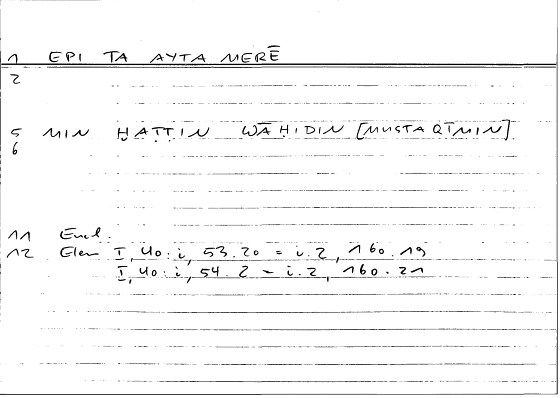 1 EPI TA AYTA MERĒ
2
5 MIN ḪAṬṬIN WĀḤIDIN [MUSTAQĪMIN]
6
11 Eucl.
12 Elem I, 40 : i, 53.20 = i.2, 160.19
I, 40 : i, 54.2 = i.2, 160.21